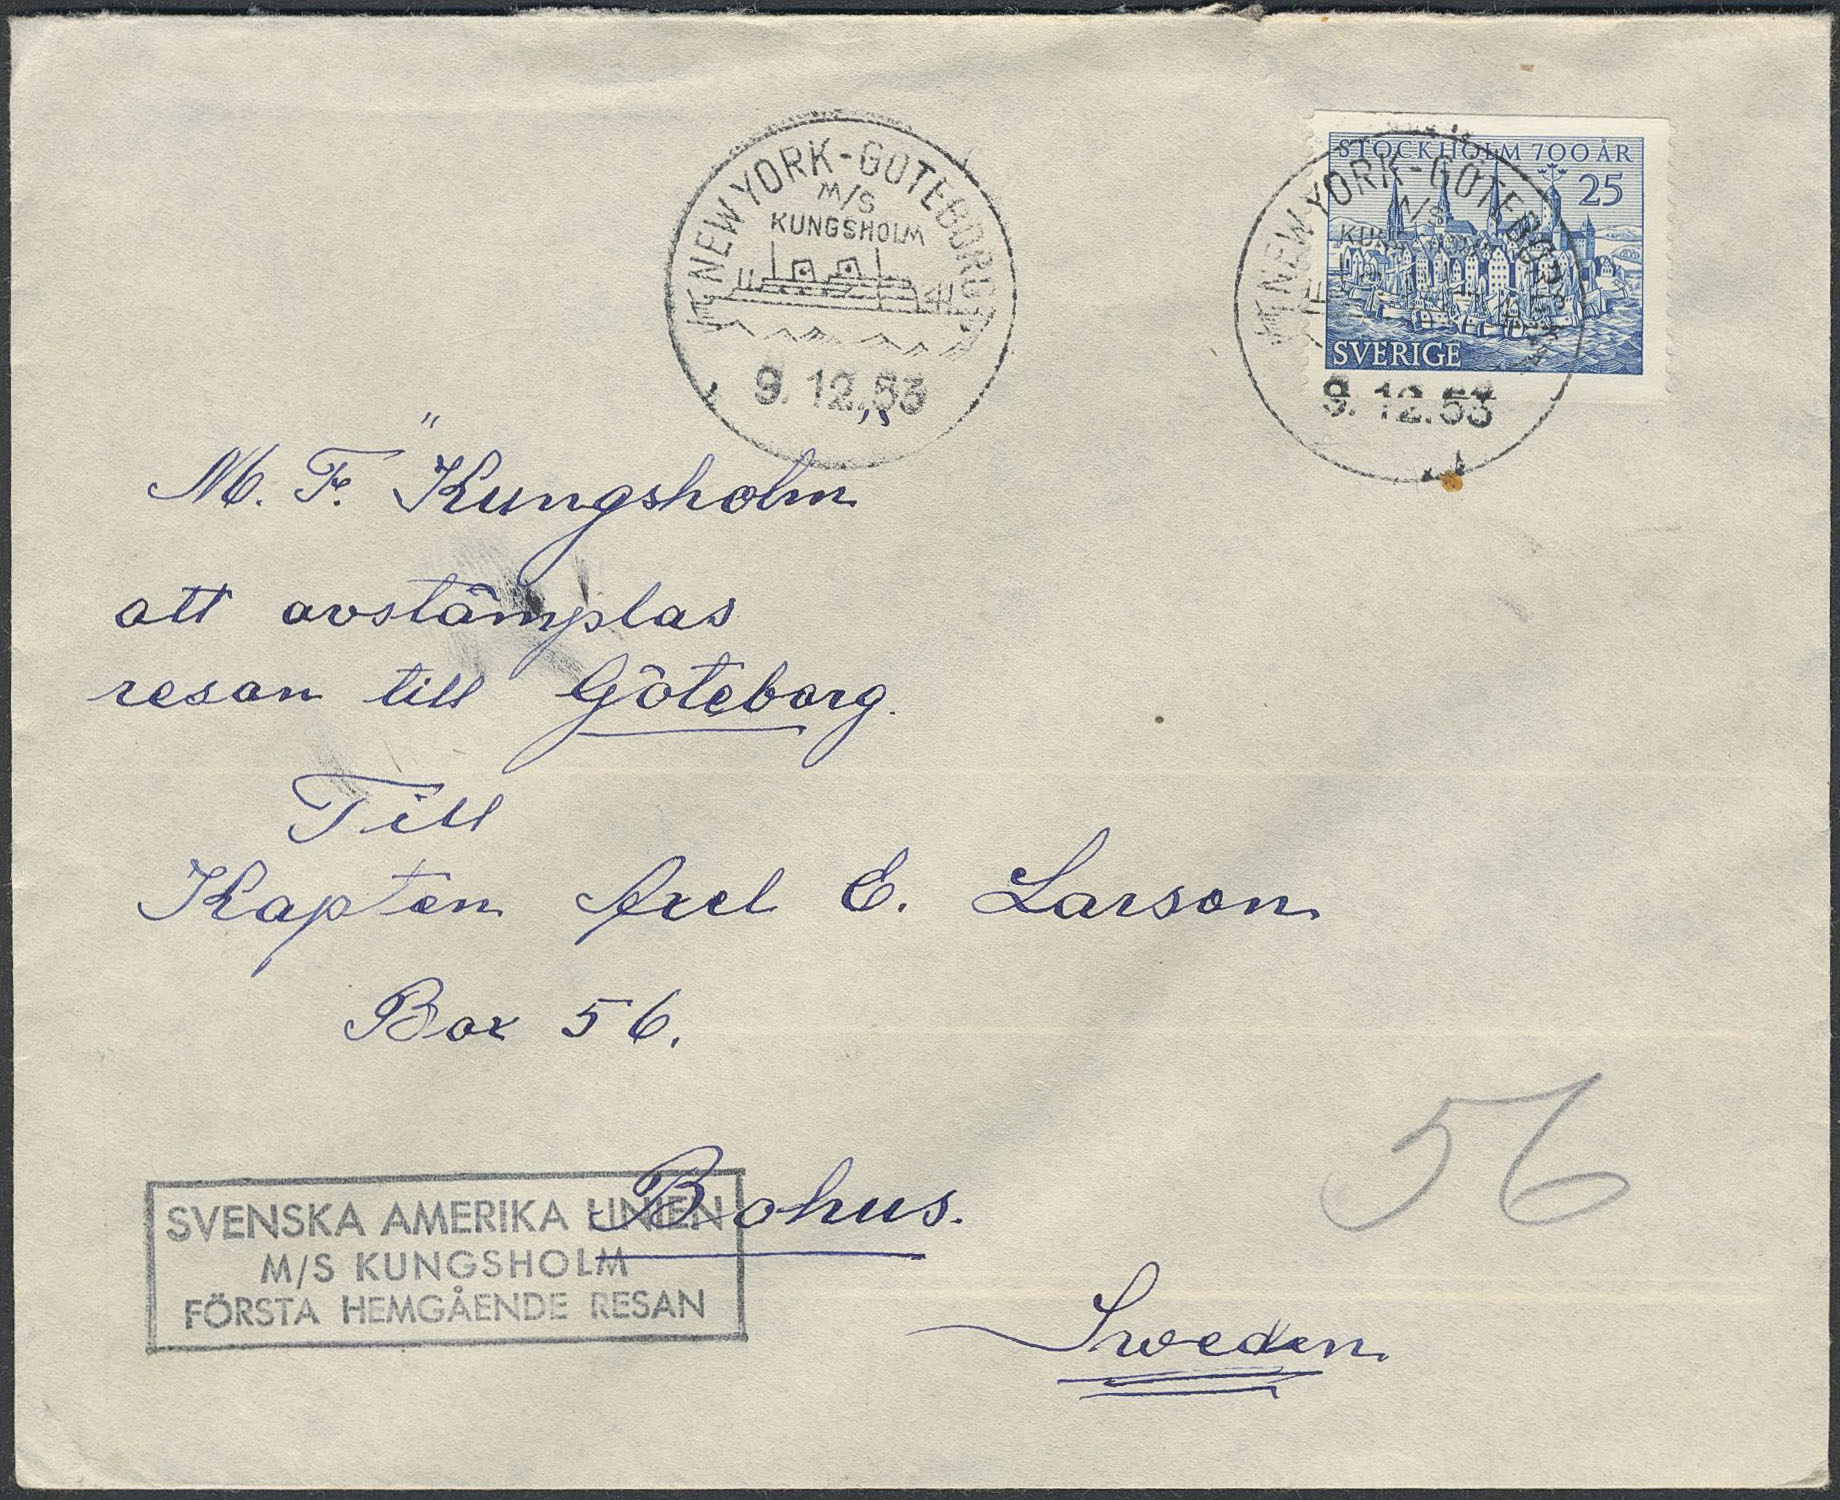 NEW YORK-GÖTEBORG
M/S
KUNGSHOLM
9.12.53
STOCKHOLM 700 ÅR
25
SVERIGE
NEW YORK-GÖTEBORG
M/S
KUNGSHOLM
9.12.53
M. F. "Kungsholm"
att avstämplas
resan till Göteborg.
Till
Kapten Axel E. Larson
Box 56.
Bohus.
56
SVENSKA AMERIKA LINIEN
M/S KUNGSHOLM
FÖRSTA HEMGÅENDE RESAN
Sweden